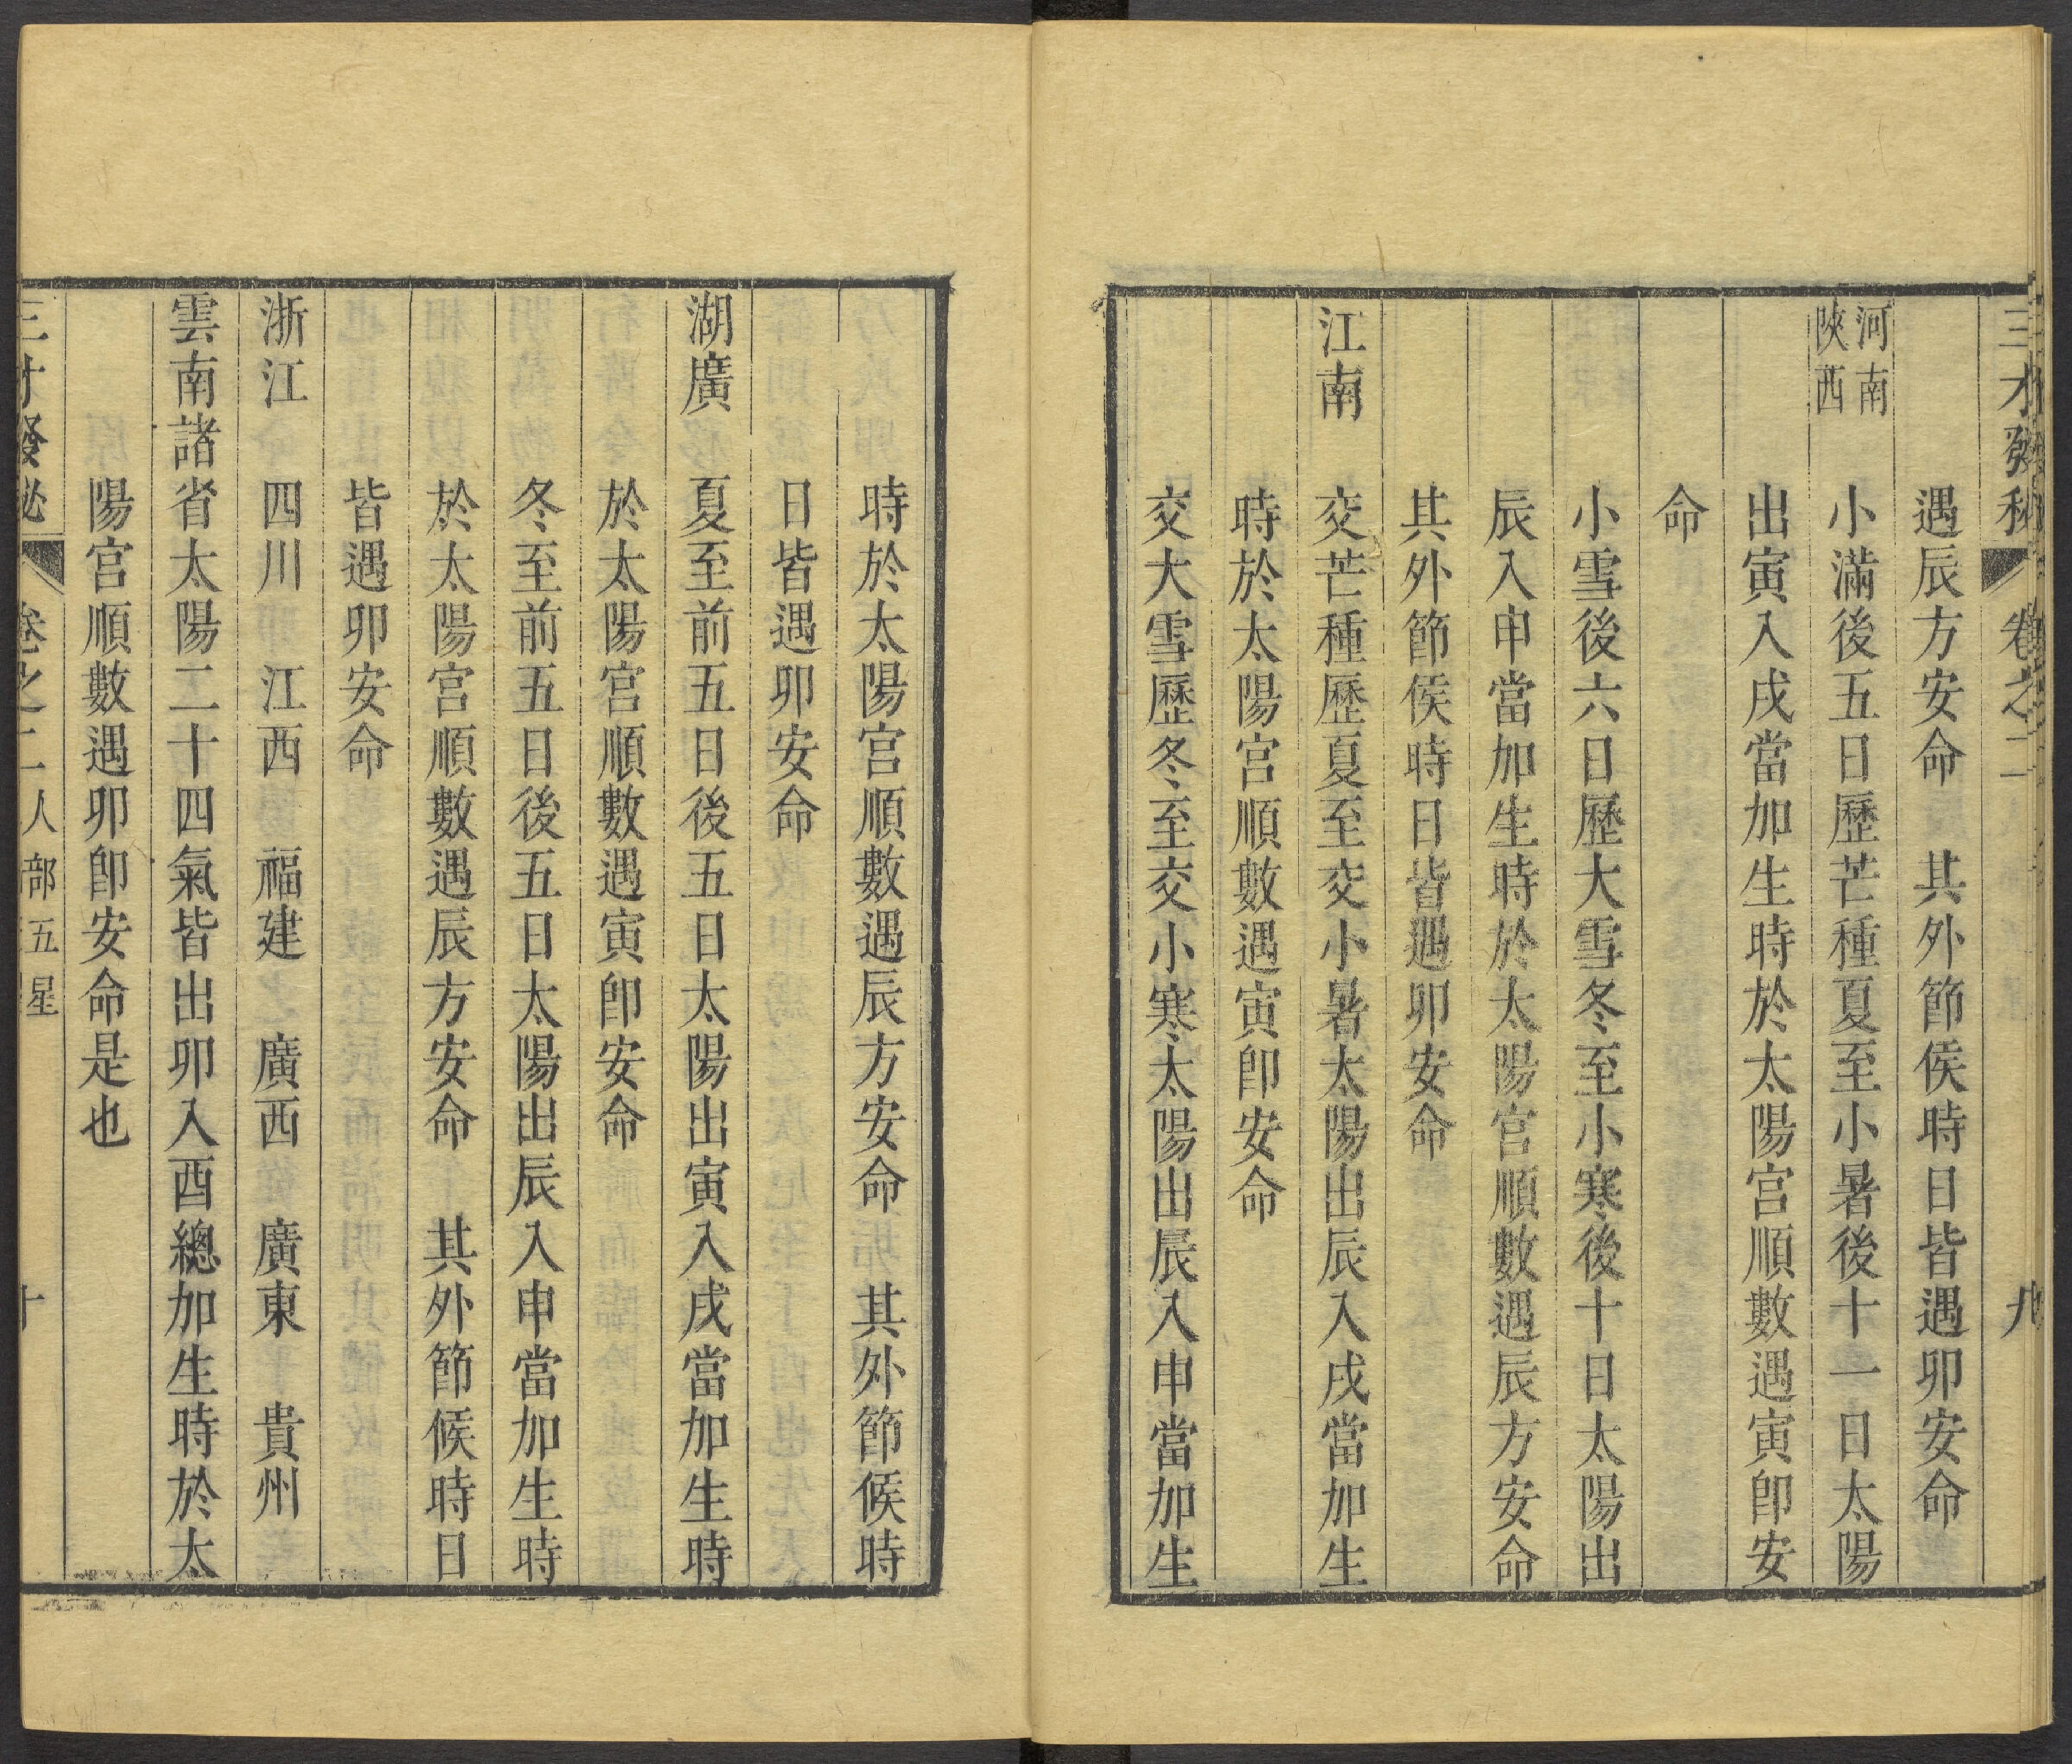 三才發秘 卷之二 九
遇辰方安命 其外節侯時日皆遇卯安命
河南陝西 小滿後五日歷芒種夏至小暑後十一日太陽
出寅入戌當加生時於太陽宮順數遇寅卽安
命
小雪後六日歷大雪冬至小寒後十日太陽出
辰入申當加生時於太陽宮順數遇辰方安命
其外節侯時日皆遇卯安命
江南 交芒種歷夏至交小暑太陽出辰入戌當加生
時於太陽宮順數遇寅卽安命
交大雪歷冬至交小寒太陽出辰入申當加生
時於太陽宮順數遇辰方安命 其外節候時
日皆遇卯安命
湖廣 夏至前五日後五日太陽出寅入戌當加生時
於太陽宮順數遇寅卽安命
冬至前五日後五日太陽出辰入申當加生時
於太陽宮順數遇辰方安命 其外節候時日
皆遇卯安命
浙江 四川 江西 福建 廣西 廣東 貴州
雲南諸省太陽二十四氣皆出卯入酉總加生時於太
陽宮順數遇卯卽安命是也
三才發秘 卷之二人部五星 十